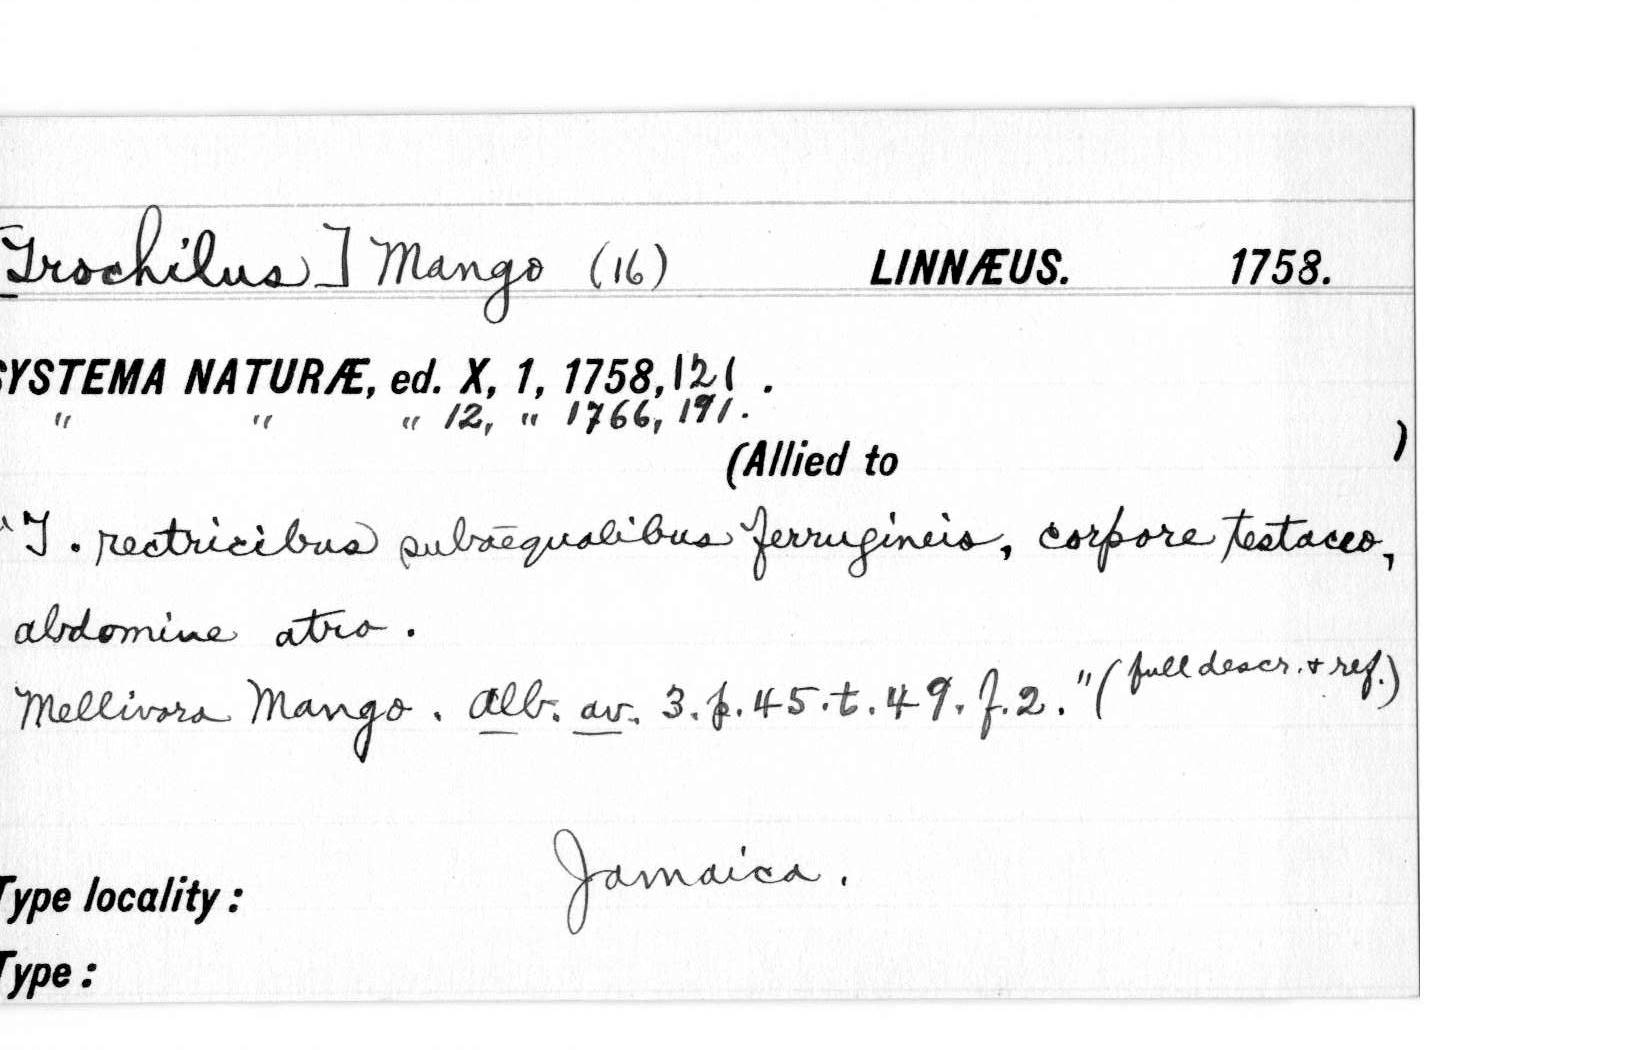 [Trochilus] Mango (16) LINNÆUS. 1758.
SYSTEMA NATURÆ, ed. X, 1, 1758, 121.
" " " 12, " 1766, 191.
(Allied to )
"T. rectricibus subaequalibus ferrugineis, corpore testaceo,
abdomine atro.
Mellivora Mango. Alb. av. 3. p. 45. t. 49. f. 2." (full descr. & ref.)
Jamaica.
Type locality:
Type: